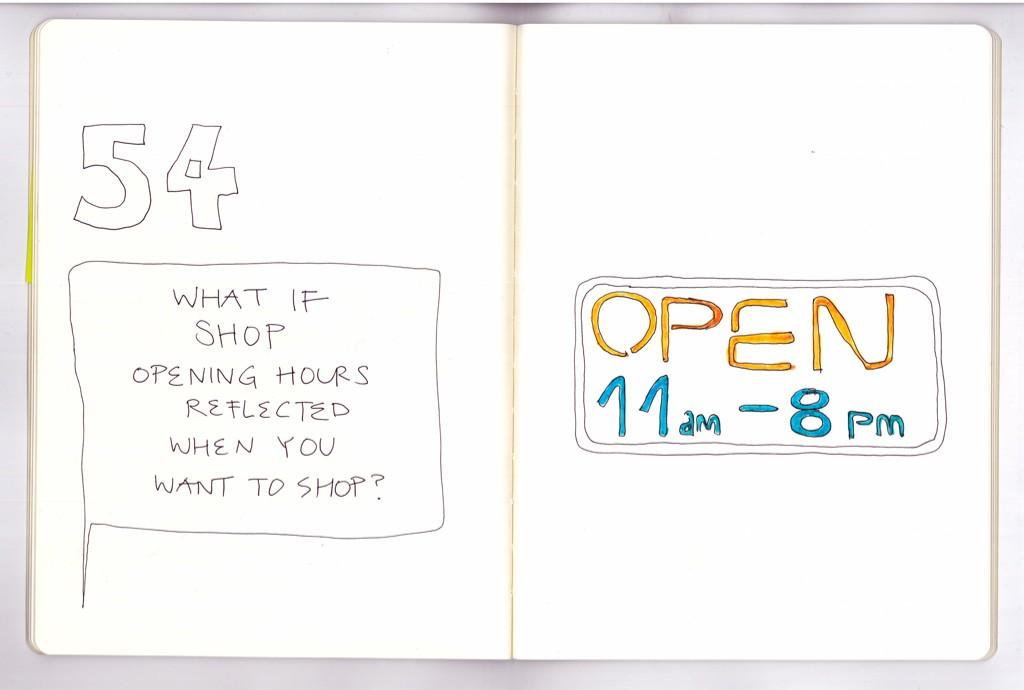 54
WHAT IF
SHOP
OPENING HOURS
REFLECTED
WHEN YOU
WANT TO SHOP?
OPEN
11am - 8pm